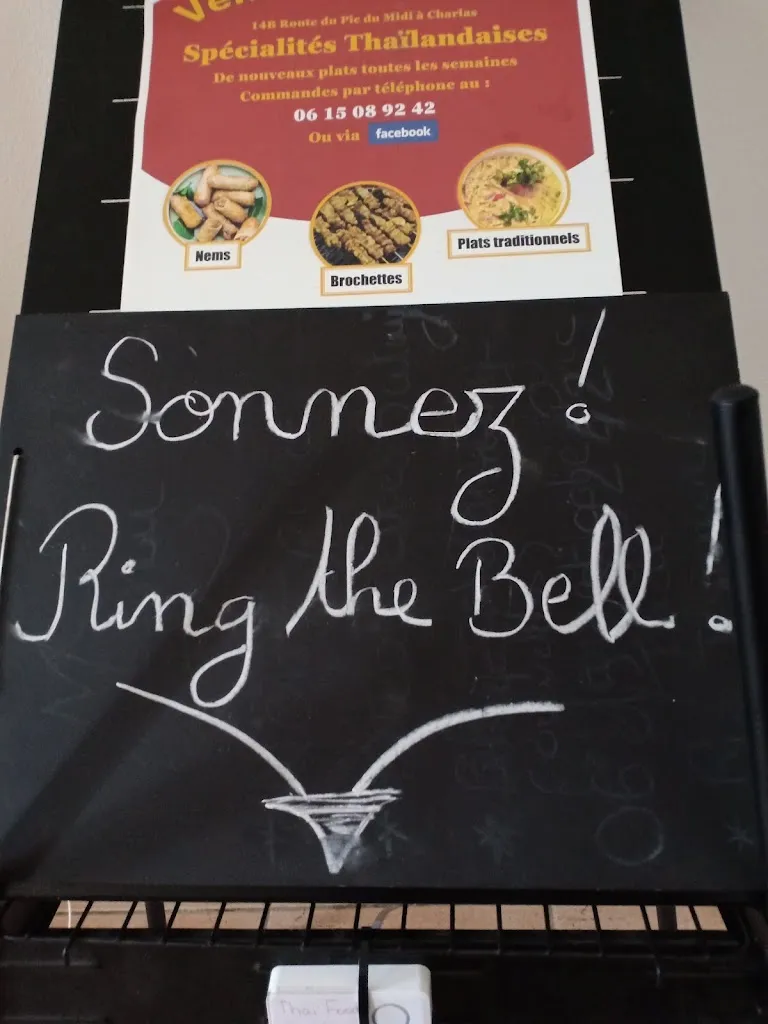 14B Route du Pic du Midi à Charlas
Spécialités Thaïlandaises
De nouveaux plats toutes les semaines
Commandes par téléphone au :
06 15 08 92 42
Ou via facebook
Nems
Brochettes
Plats traditionnels
Sonnez !
Ring the Bell !
Thai Food